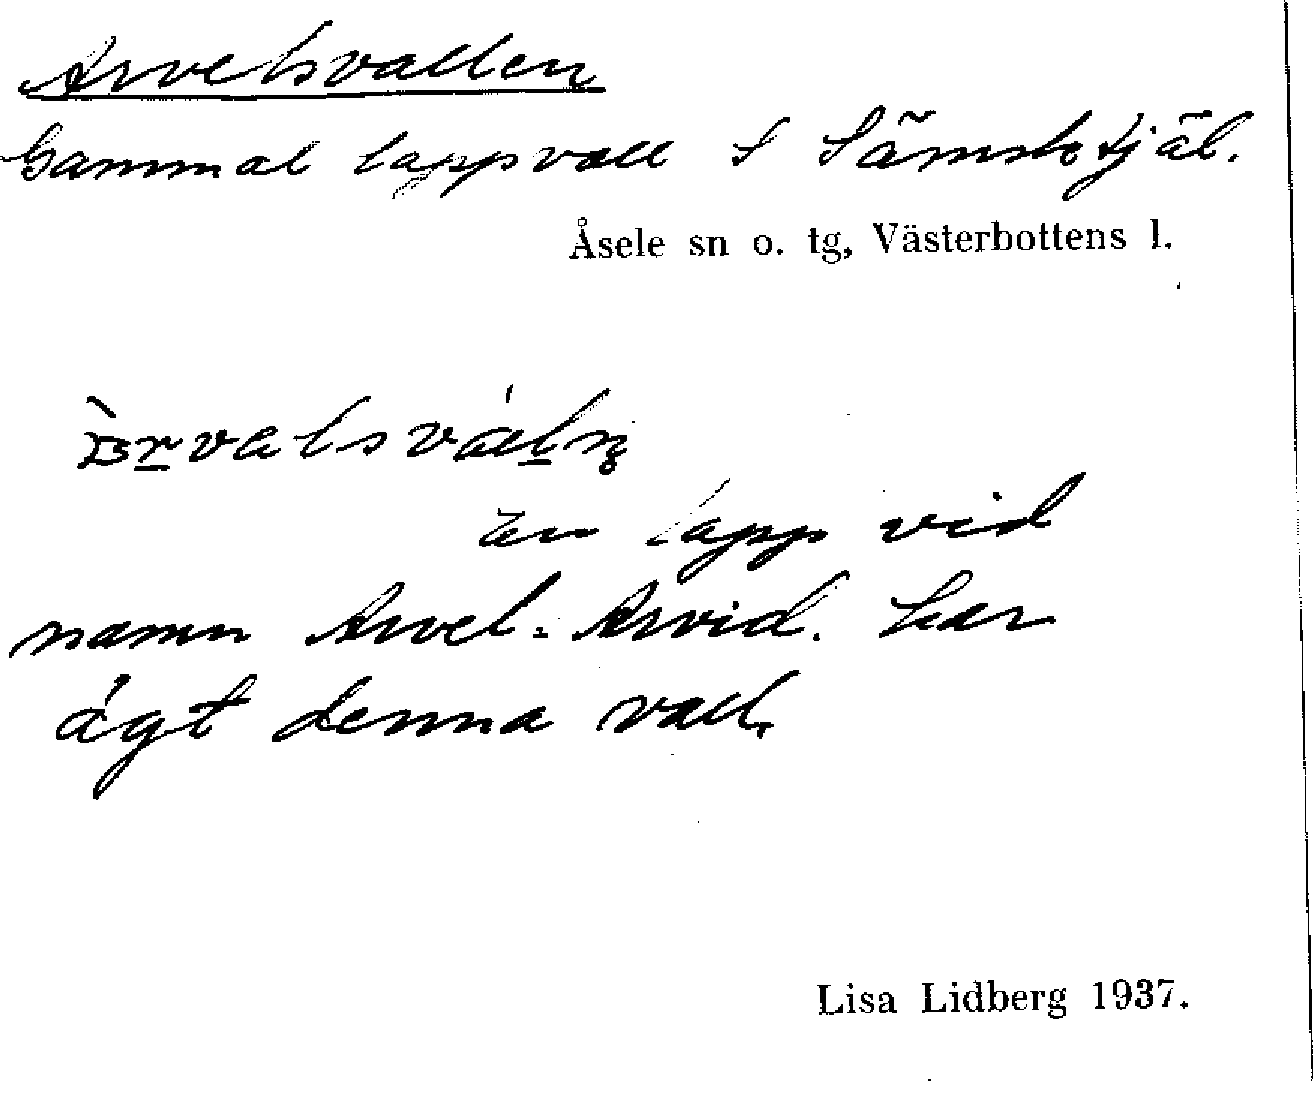 Arvelsvallen
Gammal lappvall i
Åsele sn o. tg, Västerbottens l.
en lapp vid
namn Arvel = Arvid. har
ägt denna vall.
Lisa Lidberg 1937.